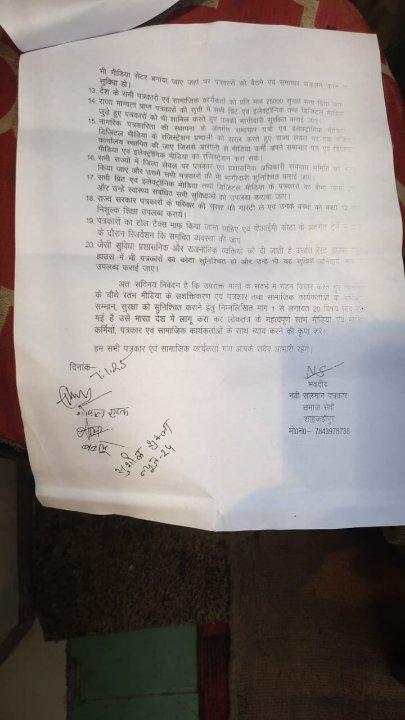 भी मीडिया सेंटर बनाया जाए जहां पर पत्रकारों को बैठने एवं समाचार संकलन करने
सुविधा हो।
13. देश के सभी पत्रकारों एवं सामाजिक कार्यकर्ता को प्रति माह 25000 सुरक्षा भत्ता दिया
14. राज्य मान्यता प्राप्त पत्रकारों की सूची में सभी प्रिंट एवं इलेक्ट्रॉनिक तथा डिजिटल मीडिया
जुड़े हुए पत्रकारों को भी शामिल करते हुए उनकी भागीदारी सुनिश्चित कराई जाए।
15. नागरिक पत्रकारिता की स्थापना के अंतर्गत समाचार पत्रों एवं इलेक्ट्रॉनिक
डिजिटल मीडिया के रजिस्ट्रेशन प्रणाली को सरल करते हुए राज्य लेवल पर एक
कार्यालय स्थापित की जाए जिससे आसानी से मीडिया कर्मी अपने समाचार पत्र एवं
मीडिया एवं इलेक्ट्रॉनिक मीडिया का रजिस्ट्रेशन करा सके।
16. सभी राज्यों में जिला लेवल पर पत्रकार एवं प्रशासनिक अधिकारी समन्वय समिति का
किया जाए और उसमें सभी पत्रकारों की भी भागीदारी सुनिश्चित कराई जाए।
17. सभी प्रिंट एवं इलेक्ट्रॉनिक मीडिया तथा डिजिटल मीडिया के पत्रकारों का बीमा
और उन्हें स्वास्थ्य संबंधित सभी सुविधाओं को उपलब्ध कराया जाए।
18. राज्य सरकार पत्रकारों के परिवार की सुरक्षा की गारंटी ले एवं उनके बच्चों को कक्षा 12
निशुल्क शिक्षा उपलब्ध कराये।
19. पत्रकारों का टोल टैक्स माफ किया जाना चाहिए एवं वीआईपी कोटा के अंतर्गत ट्रेन
के दौरान रिजर्वेशन कि समुचित व्यवस्था की जाए
20. जैसी सुविधा प्रशासनिक और राजनीतिक व्यक्तियों को दी जाती है
हाउस में भी पत्रकारों का कोटा सुनिश्चित हो और उन्हें भी यह सुविधा
उपलब्ध कराई जाए।
अतः सविनय निवेदन है कि उपरोक्त मांगों के संदर्भ में गहन विचार करते हुए
के चौथे स्तंभ मीडिया के सशक्तिकरण एवं पत्रकार तथा सामाजिक कार्यकर्ताओं के
सम्मान, सुरक्षा को सुनिश्चित कराने हेतु निम्नलिखित मांग 1 से लगायत 20 विषय बिंदु
गई है उसे भारत देश में लागू करा कर लोकतंत्र के महत्वपूर्ण स्तंभ मीडिया एवं
कर्मियों, पत्रकार एवं सामाजिक कार्यकर्ताओं के साथ न्याय करने की कृपा करें।
हम सभी पत्रकार एवं सामाजिक कार्यकर्ता गण आपके सदैव आभारी रहेंगे।
दिनांक-
भवदीय
नवी सलमान पत्रकार
समाज सेवी
शाहजहाँपुर
मो0नं0- 7843978738
न्यूज-24